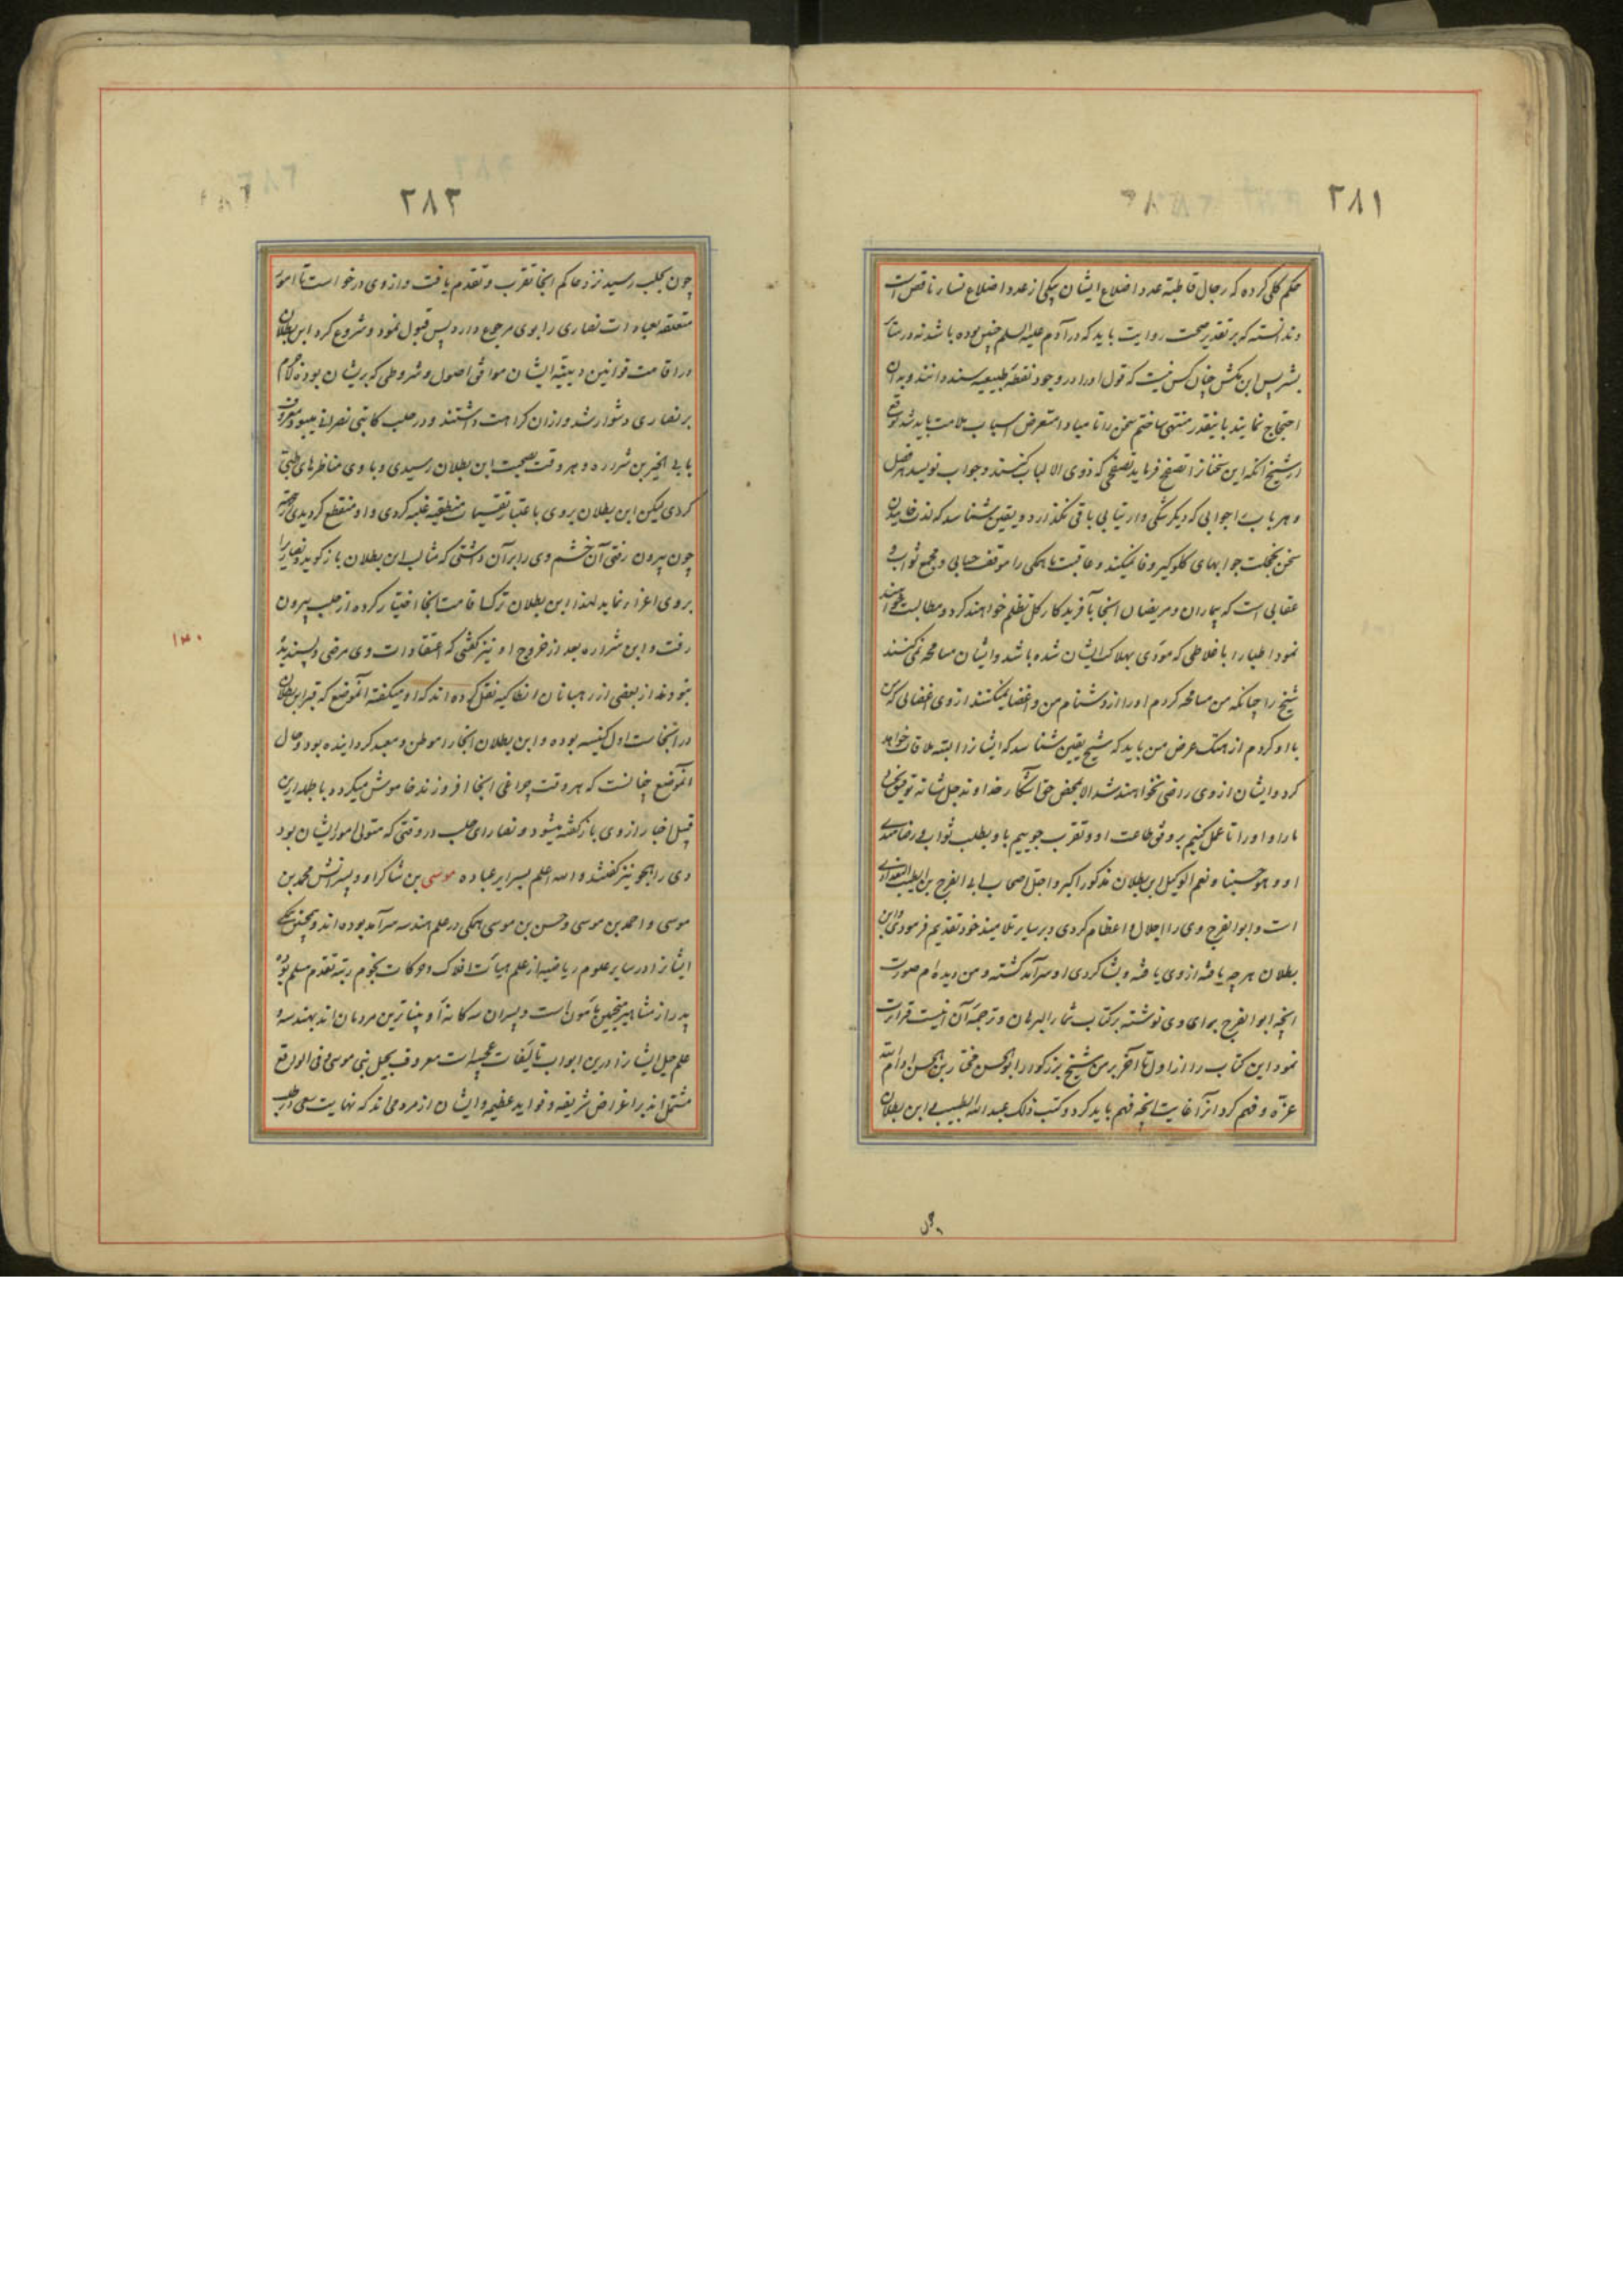 ۲۸۱
حکم کلی کرده که رجال قاطبة عدد اضلاع ایشان بیکی از عدد اضلاع نساء ناقص است
و ندانسته که بر تقدیر صحت روایت باید که در آدم علیه السلم چنین بوده باشد نه در سایر
بشر پس ابن بکش چنان کس نیست که قول او را در وجود نقطهٔ طبیعیه سند دانند و بدان
احتجاج نمایند باینقدر منتهی ساختم سخن را تا مبادا متعرض اسباب ملامت باید شد توقع
از شیخ آنکه این سخنانرا تصفح فرماید تصفحی که ذوی الالباب کنند و جواب نویسد هر فصل
و هر باب را جوابی که دیگر شکی و ارتیابی باقی نگذارد و یقین شناسد که لذت خاییدن
سخن بخجلت جوابهای گلوگیر وفا نمیکند و عاقبت ما همگی را موقف حسابی و مجمع ثواب و
عقابی است که بیماران و مریضان آنجا بآفریدکار کل تظلم خواهند کرد و مطالبت خواهند
نمود اطبا را باغلاطی که مؤدی بهلاک ایشان شده باشد و ایشان مسامحه نمی‌کنند
شیخ را چنانکه من مسامحه کردم او را از دشنام من و اغضا نمیکنند از وی اغضائی که من
با او کردم از هتک عرض من باید که شیخ یقین شناسد که ایشانرا البته ملاقات خواهد
کرد و ایشان از وی راضی نخواهند شد الا بمحض حق آشکار خداوند جل شانه توفیق بخشد
ما را و او را تا عمل کنیم بر وفق طاعت او و تقرب جوییم باو بطلب ثواب و رضامندی
او و هو حسبنا و نعم الوکیل ابن بطلان مذکور اکبر و اجل اصحاب ابی الفرج بن الطیب البغدادی
است و ابو الفرج وی را اجلال و اعظام کردی و بر سایر تلامیذ خود تقدیم فرمودی و ابن
بطلان هر چه یافته از وی یافته و بشاکردی او سرآمد کشته و من دیده‌ام صورت
آنچه ابو الفرج برای وی نوشته بر کتاب ثمار البرهان و ترجمه آن اینست قرائت
نمود این کتاب را از اول تا آخر بر من شیخ بزرکوار ابو الحسن مختار بن الحسن ادام الله
عزّه و فهم کرد از آن غایت آنچه فهم باید کرد و کتب ذلک عبد الله الطبیب ابن بطلان
چون
۲۸۲
چون بحلب رسید نزد حاکم آنجا تقرب و تقدم یافت و از وی درخواست تا امور
متعلقه بعبادات نصاری را بوی مرجوع دارد پس قبول نمود و شروع کرد ابن بطلان
در اقامت قوانین دینیه ایشان موافق اصول و شروطی که بریشان بود
بر نصاری دشوار شد و از آن کراهت داشتند و در حلب کاتبی نصرانی میبود معروف
بابی الخیر بن شراره و هر وقت بصحبت ابن بطلان رسیدی و با وی مناظرهای طبی
کردی لیکن ابن بطلان بر وی باعتبار تقسیمات منطقیه غلبه کردی و او منقطع کردیدی
چون بیرون رفتی آن خشم وی را بر آن داشتی که مثالب ابن بطلان باز کوید و نصاری را
بر وی اغرا نماید لهذا ابن بطلان ترک اقامت آنجا اختیار کرده از حلب بیرون
رفت و ابن شراره بعد از خروج او نیز کفتی که اعتقادات وی مرضی و پسندیده
نبودند از بعضی از رهبانان انطاکیه نقل کرده‌اند که او میکفته آنموضع که قبر ابن بطلان
در آنجاست اول کنیسه بوده و ابن بطلان آنجا را موطن و معبد کردانیده بود و حال
آنموضع چنانست که هر وقت چراغی آنجا افروزند خاموش میکردد بالجمله ازین
قبیل اخبار از وی باز کفته میشود و نصارای حلب در وقتی که متولی امور ایشان بود
وی را هجو نیز کفتند و الله اعلم بسرایر عباده موسی بن شاکر او و پسرانش محمد بن
موسی و احمد بن موسی و حسن بن موسی همکی در علم هندسه سرآمد بوده‌اند و همچنین
ایشانرا در سایر علوم ریاضیه از علم هیأت افلاک و حرکات نجوم رتبه تقدم مسلم بوده
پدر از مشاهیر منجمین مأمون است و پسران سه کانه او بیناترین مردمان اند بهندسه و
علم حیل ایشانرا درین ابواب تألیفات عجیبه است معروف بحیل بنی موسی و فی الواقع
مشتمل اند بر اغراض شریفه و فواید عظیمه و ایشان از مردمی اند که نهایت سعی در طلب
۱۳۰